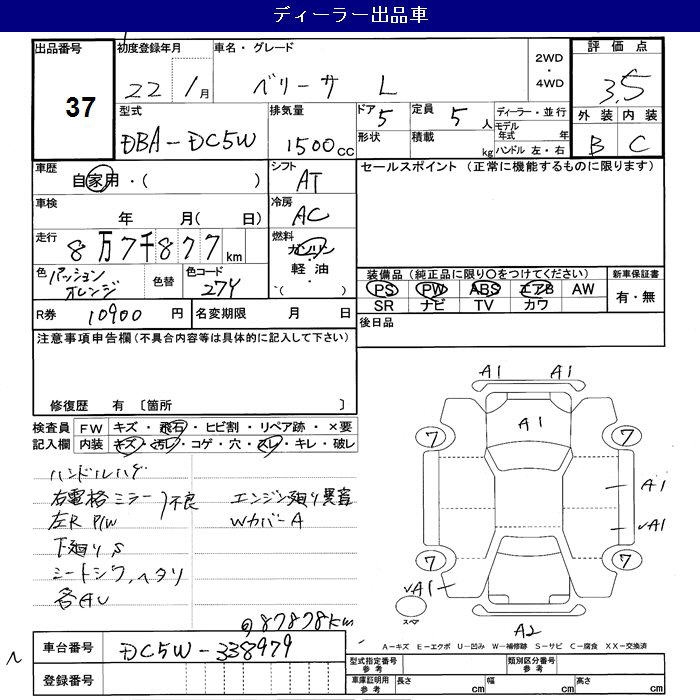 ディーラー出品車
出品番号 37
初度登録年月 22年 1月
車名・グレード ベリーサ L
2WD・4WD
評価点 3.5
外装 B 内装 C
型式 DBA-DC5W
排気量 1500cc
ドア 5 定員 5人
形状 積載 kg
ディーラー・並行
モデル年式 年
ハンドル 左・右
車歴 自家用・( )
シフト AT
セールスポイント (正常に機能するものに限ります)
車検 年 月( 日)
冷房 AC
走行 8万7千877km
燃料 ガソリン・軽油・( )
色 パッションオレンジ 色替 色コード 27Y
装備品 (純正品に限り○をつけてください) 新車保証書
PS PW ABS エアB AW 有・無
SR ナビ TV カワ
R券 10900円 名変期限 月 日
後日品
注意事項申告欄(不具合内容等は具体的に記入して下さい)
修復歴 有 〔箇所 〕
検査員記入欄
FW キズ・飛石・ヒビ割・リペア跡・×要
内装 キズ・汚レ・コゲ・穴・スレ・キレ・破レ
ハンドルハゲ
右電格ミラー 不良 エンジン廻り異音
左R P/W WカバーA
下廻りS
シートシワ、ヘタリ
各AU
@87878km
A1 A1
A1
7 7
A1
✓A1
7 7
✓A1
スペア
A2
A-キズ E-エクボ U-凹み W-補修跡 S-サビ C-腐食 XX-交換済
車台番号 DC5W-338979
登録番号
型式指定番号 参考 類別区分番号 参考
車庫証明用 参考 長さ cm 幅 cm 高さ cm